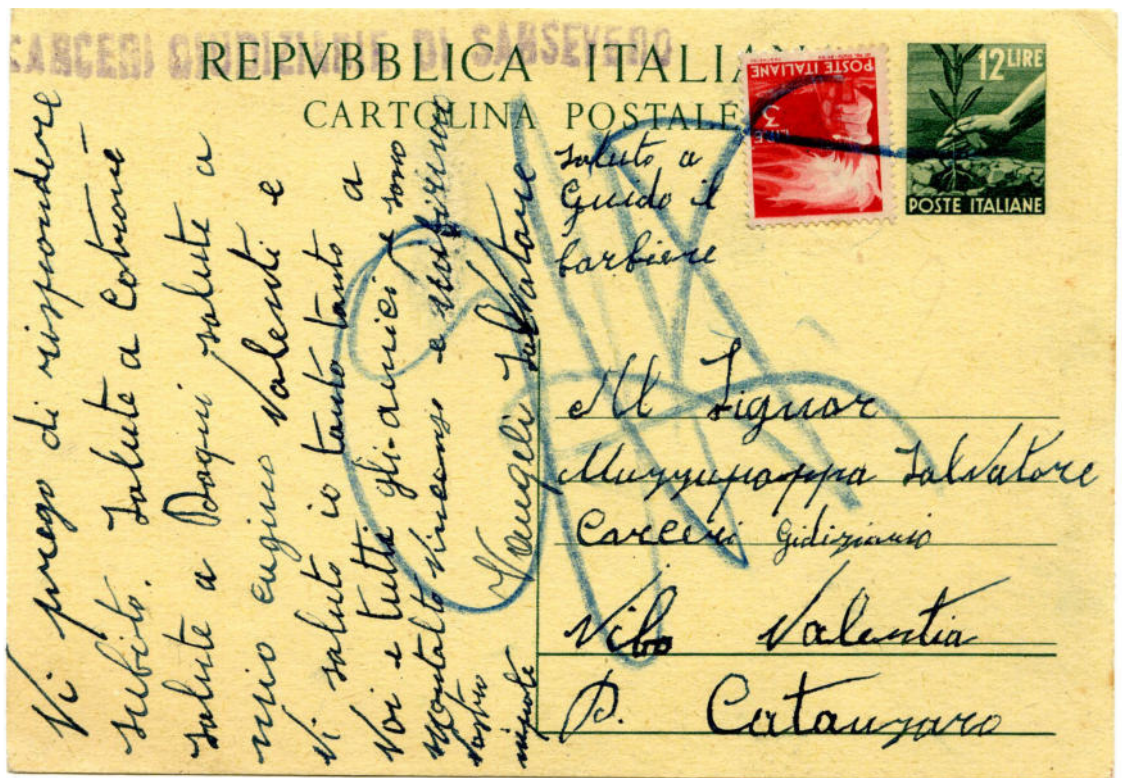 CARCERI GIUDIZIARIE DI SANSEVERO
REPVBBLICA ITALIANA
CARTOLINA POSTALE
POSTE ITALIANE
LIRE 3
12 LIRE
POSTE ITALIANE
saluto a
Guido il
barbiere
Al Signor
Muzzupappa Salvatore
Carceri Gidiziario
Vibo Valentia
P. Catanzaro
Vi prego di rispondere
subito. Salute a Cotrone
salute a salute a
mio cugino Valenti e
Vi saluto io tanto tanto a
Voi e tutte gli amici e sono
Montalto Vincenzo e
vostro Salvatore
nipote